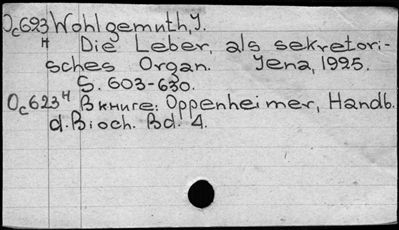 Oc623 Wohlgemuth, J.
н Die Leber, als sekretori-
sches Organ. Jena, 1925.
S. 603-630.
Oc623н В книге: Oppenheimer, Handb.
d. Bioch. Bd. 4.